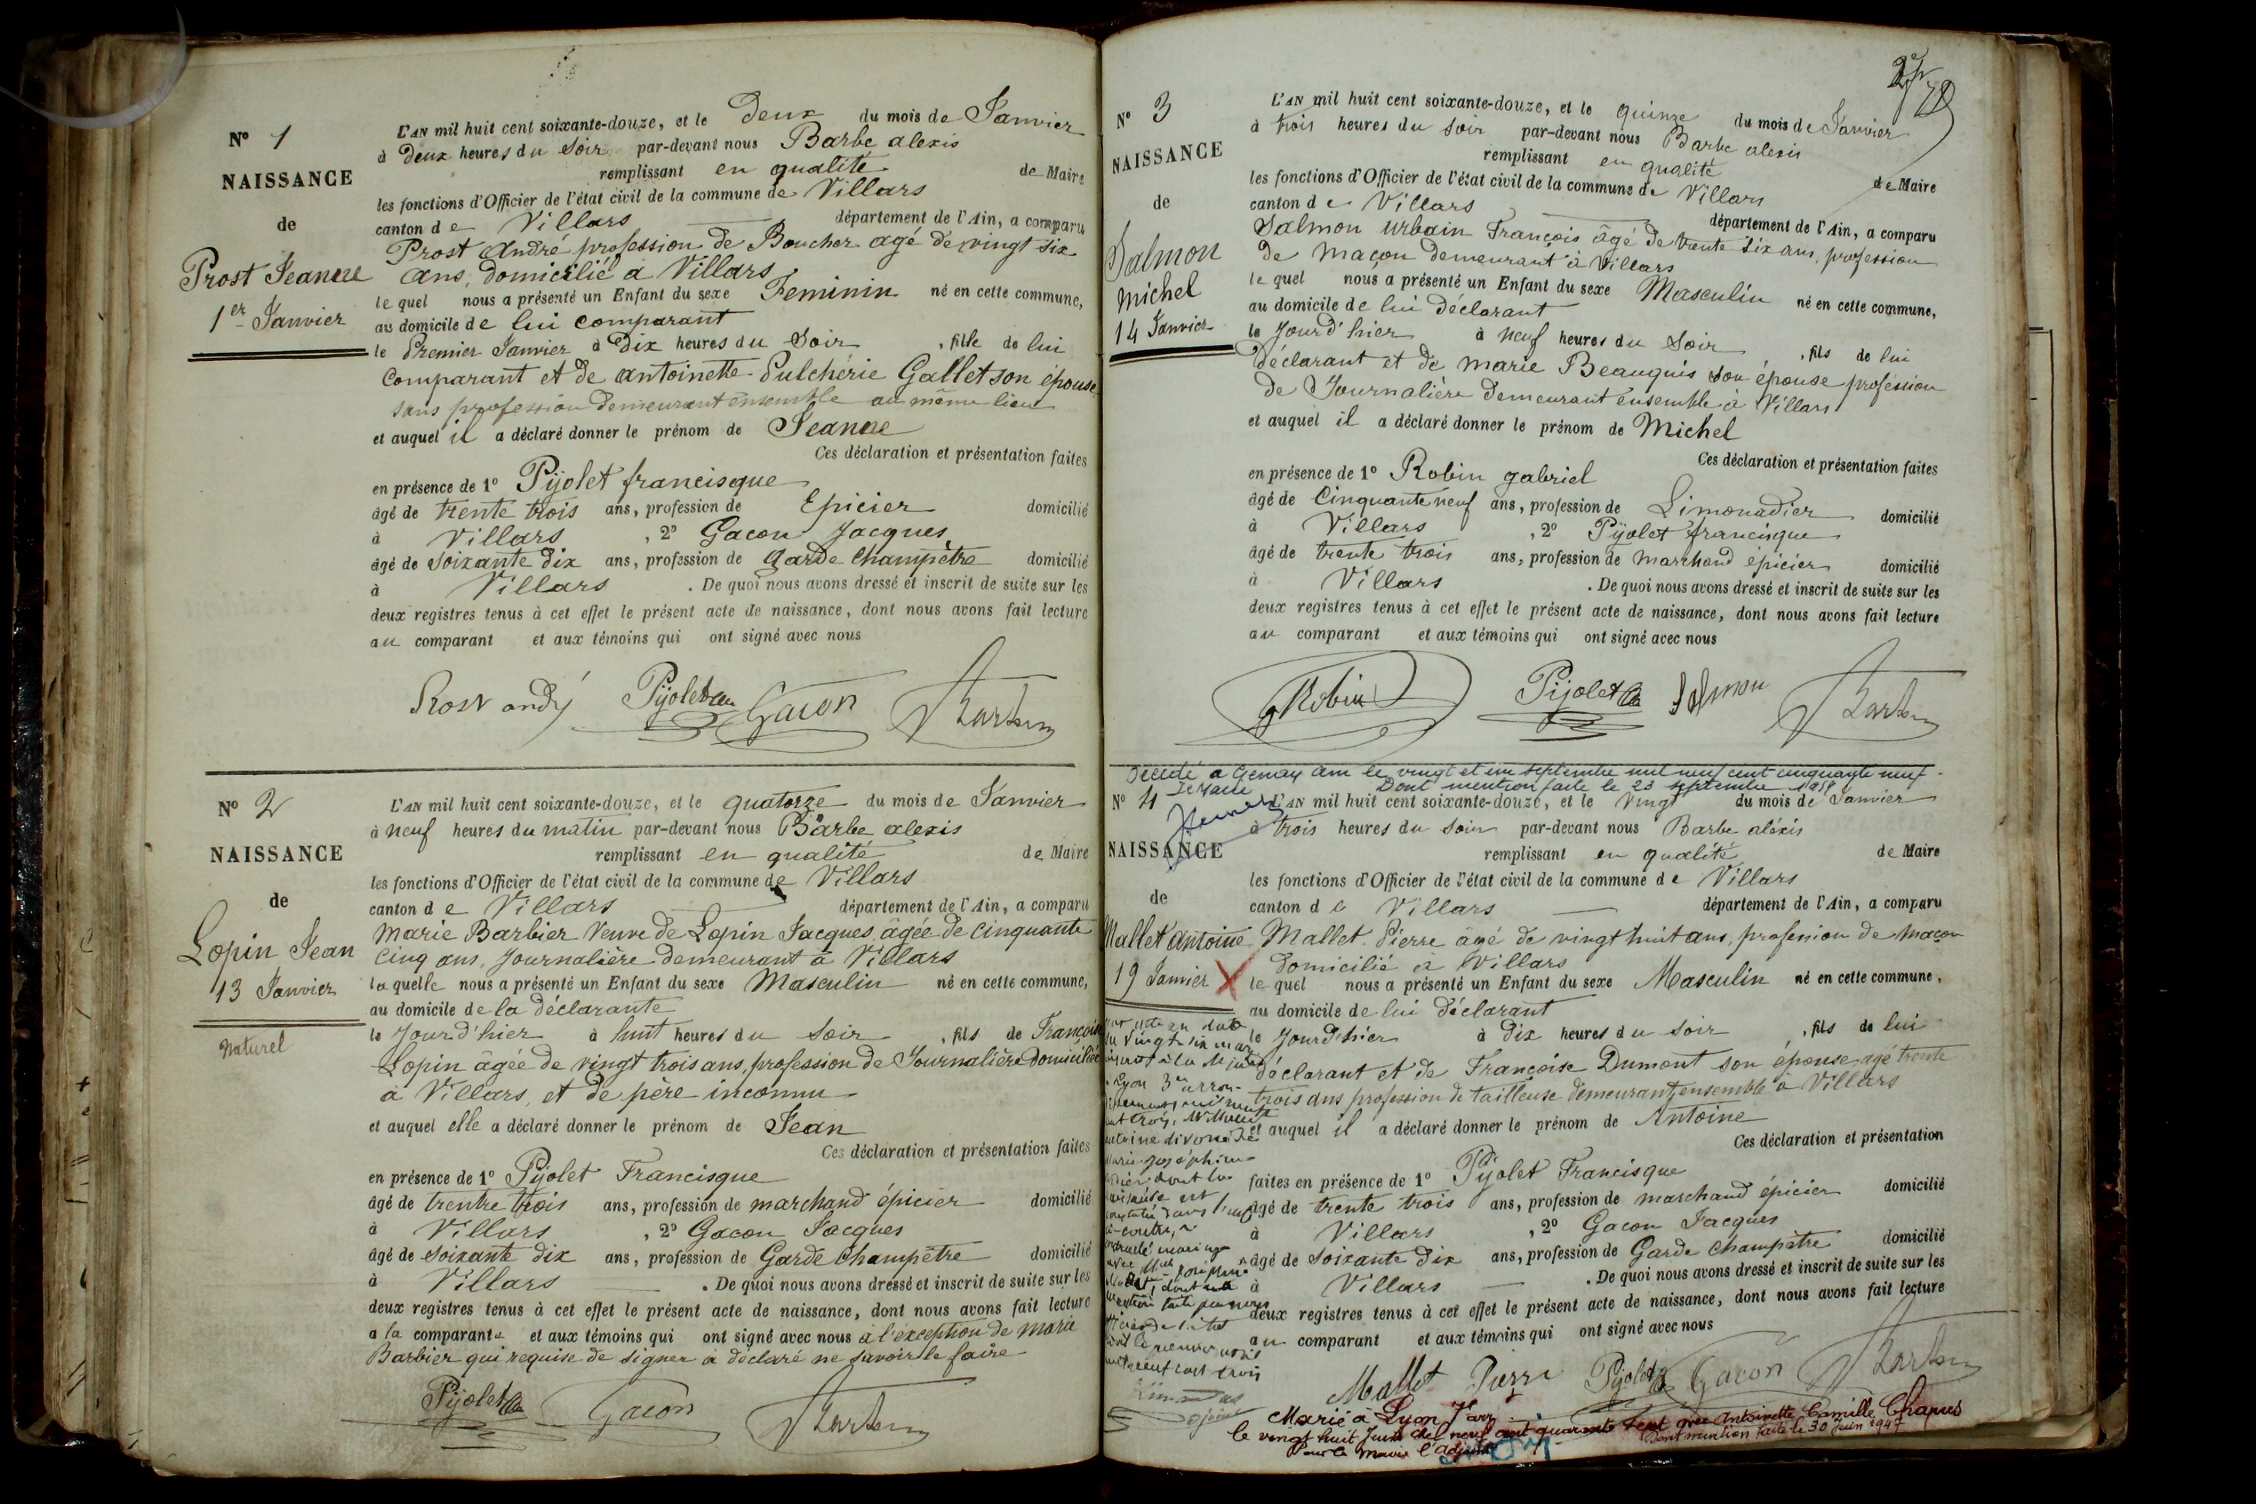 N° 1
NAISSANCE
de
Prost Jeanne
1er Janvier
L'AN mil huit cent soixante-douze, et le Deux du mois de Janvier
à Deux heures du Soir par-devant nous Barbe alexis
remplissant en qualité de Maire
les fonctions d'Officier de l'état civil de la commune de Villars
canton de Villars département de l'Ain, a comparu
Prost André profession de Boucher agé de vingt six
ans, domicilié à Villars
lequel nous a présenté un Enfant du sexe Feminin né en cette commune,
au domicile de lui comparant
le Premier Janvier à Dix heures du Soir, fille de lui
Comparant et de antoinette-Pulchérie Gallet son épouse,
sans profession demeurant ensemble au même lieu
et auquel il a déclaré donner le prénom de Jeanne
Ces déclaration et présentation faites
en présence de 1° Pijolet francisque
âgé de trente trois ans, profession de Epicier domicilié
à Villars, 2° Gacon Jacques
âgé de Soixante Dix ans, profession de garde Champêtre domicilié
à Villars. De quoi nous avons dressé et inscrit de suite sur les
deux registres tenus à cet effet le présent acte de naissance, dont nous avons fait lecture
au comparant et aux témoins qui ont signé avec nous
Rost andy Pijolet Gacon Barbe
N° 2
NAISSANCE
de
Lopin Jean
13 Janvier
Naturel
L'AN mil huit cent soixante-douze, et le quatorze du mois de Janvier
à neuf heures du matin par-devant nous Barbe alexis
remplissant en qualité de Maire
les fonctions d'Officier de l'état civil de la commune de Villars
canton de Villars département de l'Ain, a comparu
Marie Barbier Veuve de Lopin Jacques, âgée de Cinquante
Cinq ans, Journalière demeurant à Villars
laquelle nous a présenté un Enfant du sexe Masculin né en cette commune,
au domicile de la déclarante
le Jourd'hier à huit heures du Soir, fils de Françoise
Lopin âgée de vingt trois ans, profession de Journalière domiciliée
à Villars, et de père inconnu
et auquel elle a déclaré donner le prénom de Jean
Ces déclaration et présentation faites
en présence de 1° Pijolet Francisque
âgé de trentre trois ans, profession de marchand épicier domicilié
à Villars, 2° Gacon Jacques
âgé de Soixante dix ans, profession de Garde Champêtre domicilié
à Villars. De quoi nous avons dressé et inscrit de suite sur les
deux registres tenus à cet effet le présent acte de naissance, dont nous avons fait lecture
a la comparante et aux témoins qui ont signé avec nous à l'exception de Marie
Barbier qui requise de signer a déclaré ne savoir le faire
Pijolet Gacon Barbe
N° 3
NAISSANCE
de
Salmon
Michel
14 Janvier
L'AN mil huit cent soixante-douze, et le quinze du mois de Janvier
à trois heures du Soir par-devant nous Barbe alexis
remplissant en qualité de Maire
les fonctions d'Officier de l'état civil de la commune de Villars
canton de Villars département de l'Ain, a comparu
Salmon Urbain François âgé de trente six ans, profession
de Maçon demeurant à Villars
lequel nous a présenté un Enfant du sexe Masculin né en cette commune,
au domicile de lui déclarant
le Jourd'hier à neuf heures du Soir, fils de lui
Déclarant et de Marie Beauguis son épouse profession
de Journalière demeurant ensemble à Villars
et auquel il a déclaré donner le prénom de Michel
Ces déclaration et présentation faites
en présence de 1° Robin gabriel
âgé de Cinquante neuf ans, profession de Limonadier domicilié
à Villars, 2° Pijolet francisque
âgé de trente trois ans, profession de marchand épicier domicilié
à Villars. De quoi nous avons dressé et inscrit de suite sur les
deux registres tenus à cet effet le présent acte de naissance, dont nous avons fait lecture
au comparant et aux témoins qui ont signé avec nous
gRobin Pijolet Salmon Barbe
Décédé à Ain le vingt et un septembre mil neuf cent cinquante neuf.
Dont mention faite le 23 septembre 1959
N° 4
NAISSANCE
de
Mallet Antoine
19 Janvier X
L'AN mil huit cent soixante-douze, et le vingt du mois de Janvier
à trois heures du Soir par-devant nous Barbe aléxis
remplissant en qualité de Maire
les fonctions d'Officier de l'état civil de la commune de Villars
canton de Villars département de l'Ain, a comparu
Mallet Pierre âgé de vingt huit ans, profession de Maçon
domicilié à Villars
lequel nous a présenté un Enfant du sexe Masculin né en cette commune,
au domicile de lui déclarant
le Jourd'hier à Dix heures du Soir, fils de lui
déclarant et de Françoise Dumont son épouse agé trente
trois ans profession de tailleuse demeurant ensemble à Villars
et auquel il a déclaré donner le prénom de Antoine
Ces déclaration et présentation
faites en présence de 1° Pijolet Francisque
âgé de trente trois ans, profession de marchand épicier domicilié
à Villars, 2° Gacon Jacques
âgé de Soixante dix ans, profession de Garde Champêtre domicilié
à Villars. De quoi nous avons dressé et inscrit de suite sur les
deux registres tenus à cet effet le présent acte de naissance, dont nous avons fait lecture
au comparant et aux témoins qui ont signé avec nous
Mallet Pierre Pijolet Gacon Barbe
Marié à Lyon 7e arr
le vingt huit Juin mil neuf cent quarante sept avec Antoinette Camille Chapus
Dont mention faite le 30 Juin 1947
Pour le Maire l'adjoint